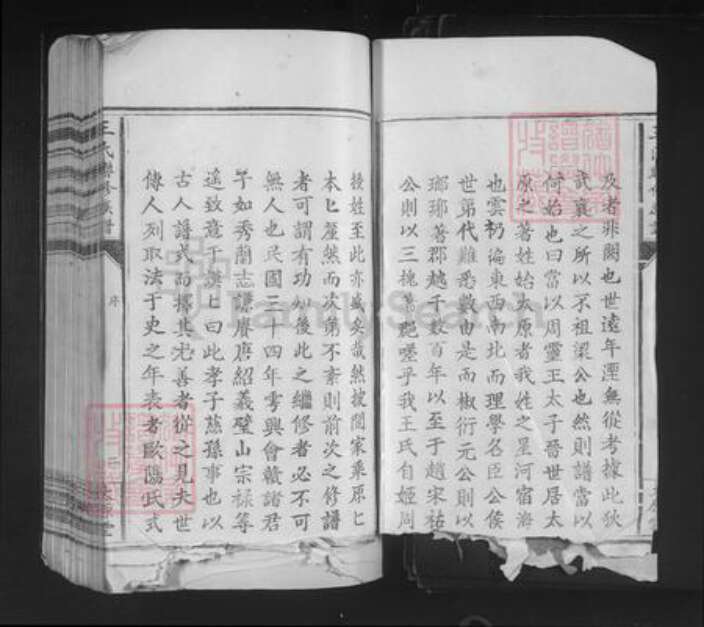 及者非闕也世遠年湮無從考據此狄
武襄之所以不祖梁公也然則譜當以
何始也曰當以周靈王太子晉世居太
原之著姓始太原者我姓之星河宿海
也雲礽徧東西南北而理學名臣公侯
世第代難悉數由是而椒衍元公則以
瑯琊著郡越千數百年以至于趙宋祐
公則以三槐第甦嗟乎我王氏自姬周
授姓至此亦盛矣哉然披閱家乘原匕
本匕釐然而次第不紊則前次之修譜
者可謂有功如後此之繼修者必不可
無人也民國三十四年雩興會贛諸君
子如秀蘭志謙賡唐紹義璧山宗祿等
遙致意于譔上曰此孝子慈孫事也以
古人譜式而擇其尤善者從之見夫世
傳人列取法于史之年表者歐陽氏式
王氏聯修族譜
序
二
FamilySearch